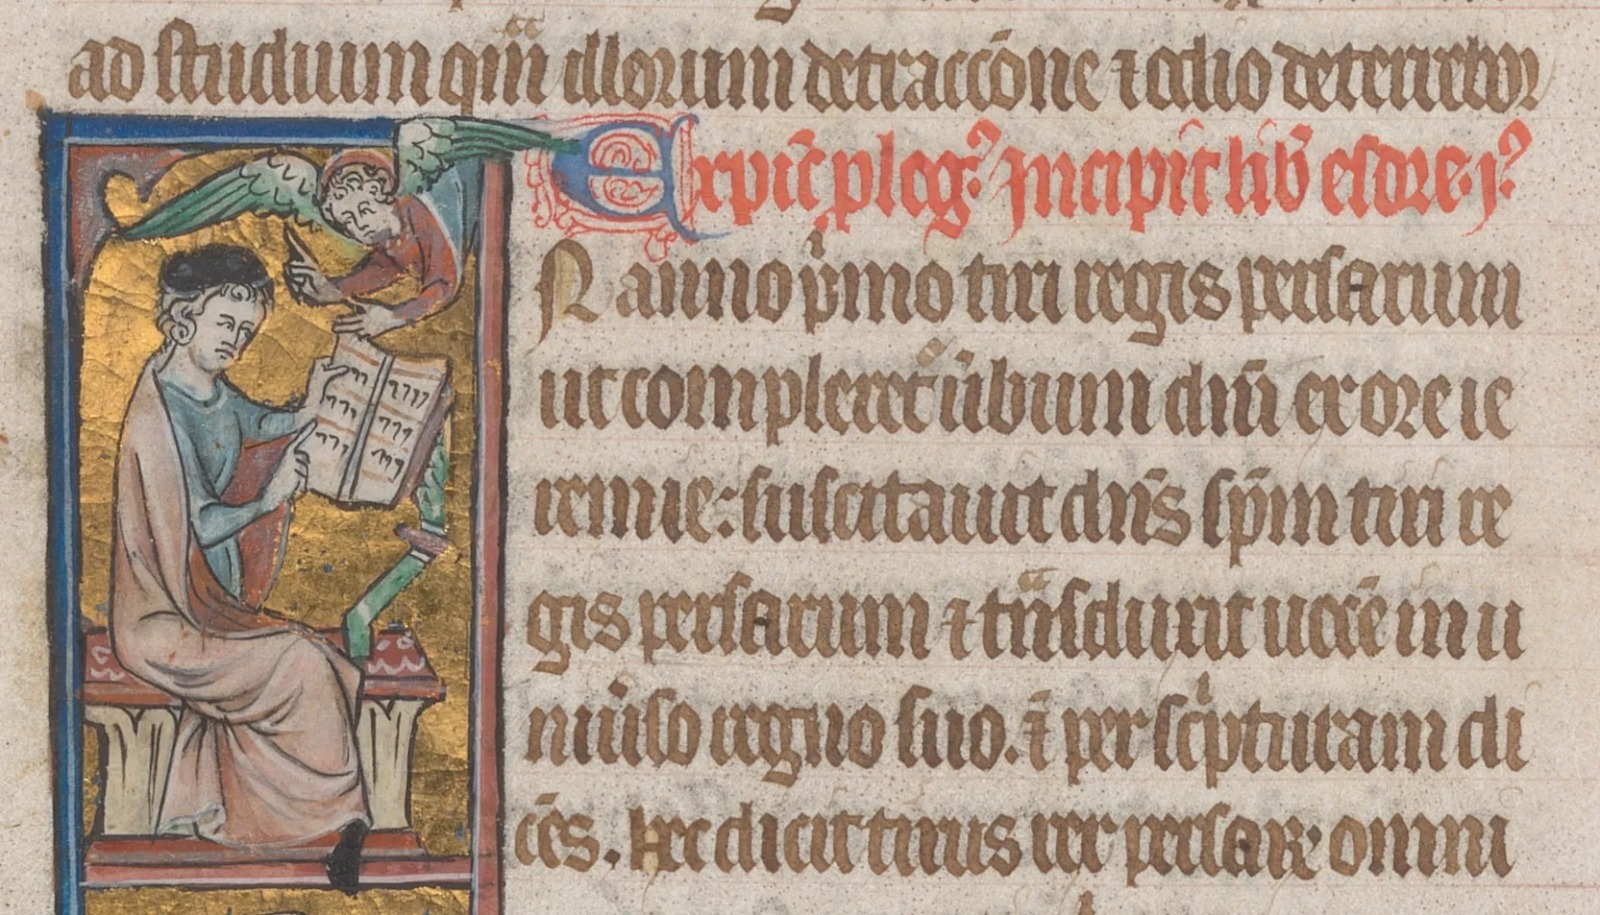 ad studium qm̄ illorum detraccōne ⁊ odio deterretur
Explic̄ plog᷒ Jncipit lib̄ esdre·j᷒
N anno pͥmo ciri regis persarum
ut compleret᷑ ūbum dn̄i ex ore ie
remie: suscitauit dn̄s sp̄m ciri re
gis persarum ⁊ tͣnsduxit uocē in u
niūso regno suo. ī per scͥpturam di
cēs. hec dicit cirus rex persaꝝ: omni